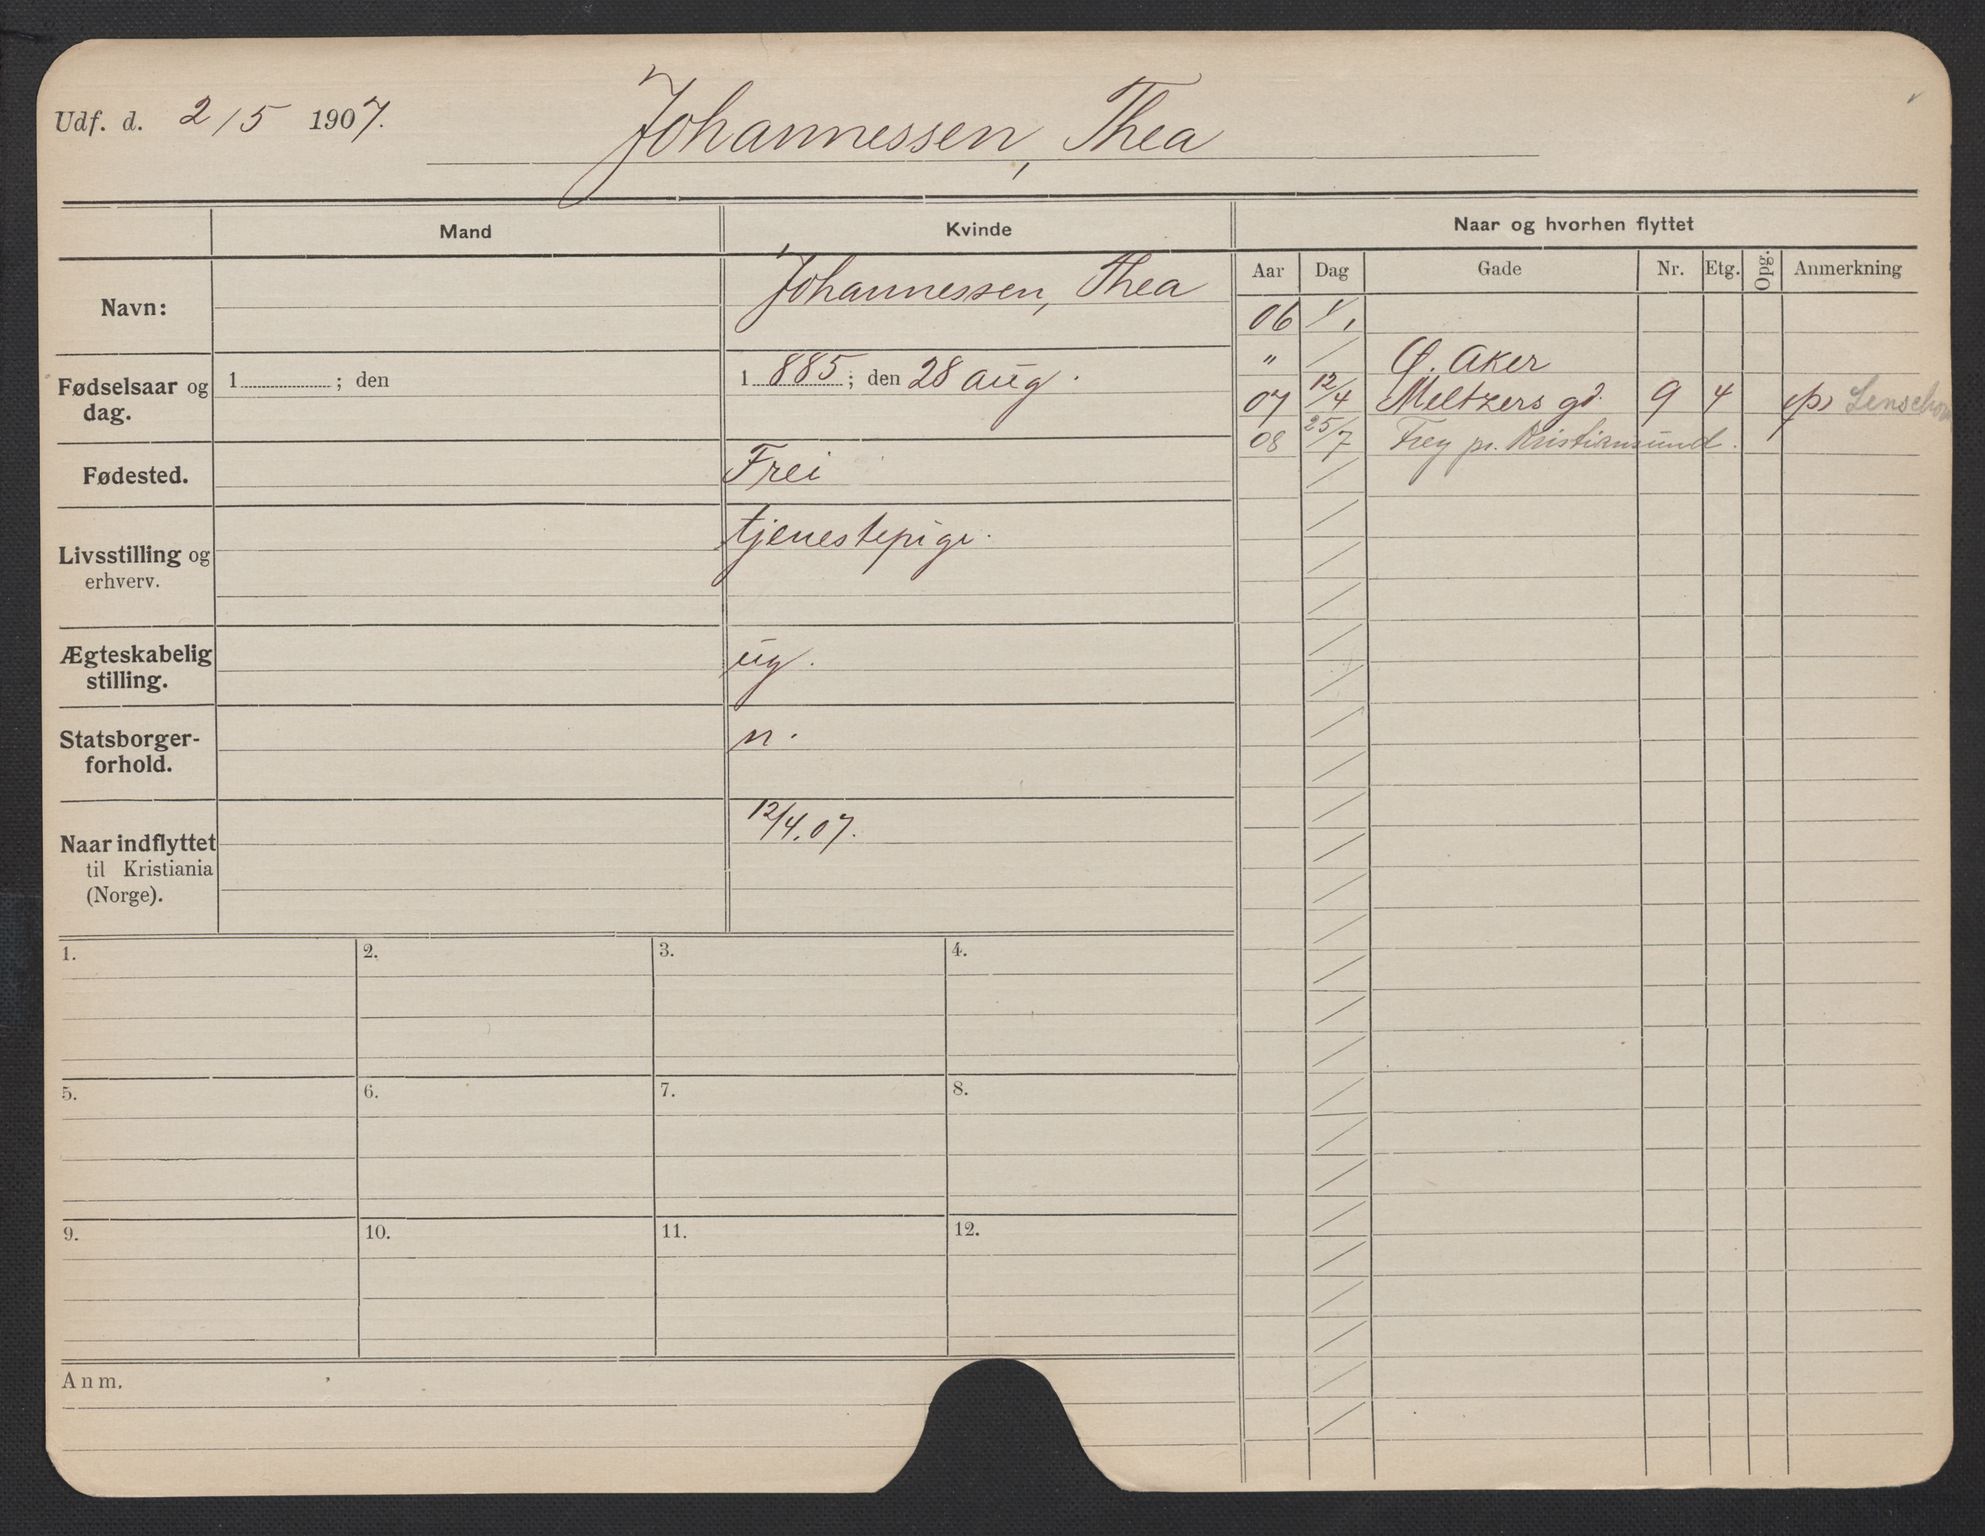 Udf. d. 2/5 1907.
Johannessen, Thea
Mand
Kvinde
Naar og hvorhen flyttet
Aar Dag Gade Nr. Etg. Opg. Anmerkning
Navn:
Johannessen, Thea
06 1/1
" / Ø. Aker
07 12/4 Meltzers gd. 9 4
08 25/7 Frey pr. Kristiansund.
Fødselsaar og
dag.
1 ; den
1 885 ; den 28 aug.
Fødested.
Frei
Livsstilling og
erhverv.
tjenestepige.
Ægteskabelig
stilling.
ug.
Statsborger-
forhold.
n.
Naar indflyttet
til Kristiania
(Norge).
12/4.07.
1. 2. 3. 4.
5. 6. 7. 8.
9. 10. 11. 12.
Anm.